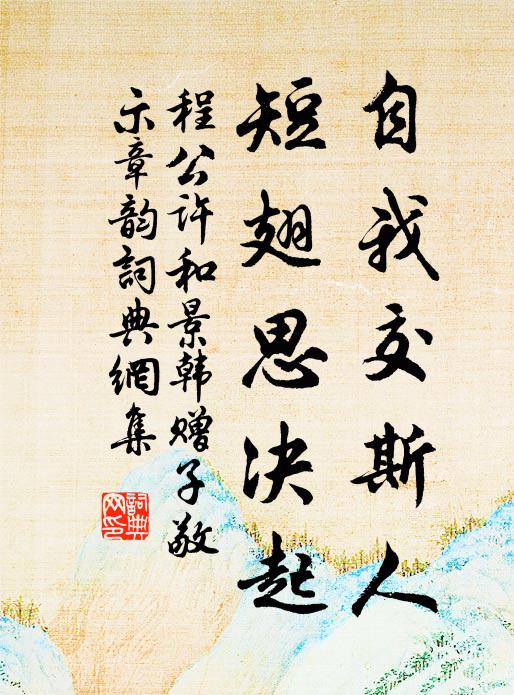 自我交斯人
短翅思决起
程公许和景韩赠子敬
示章韵詞典網集
詞典